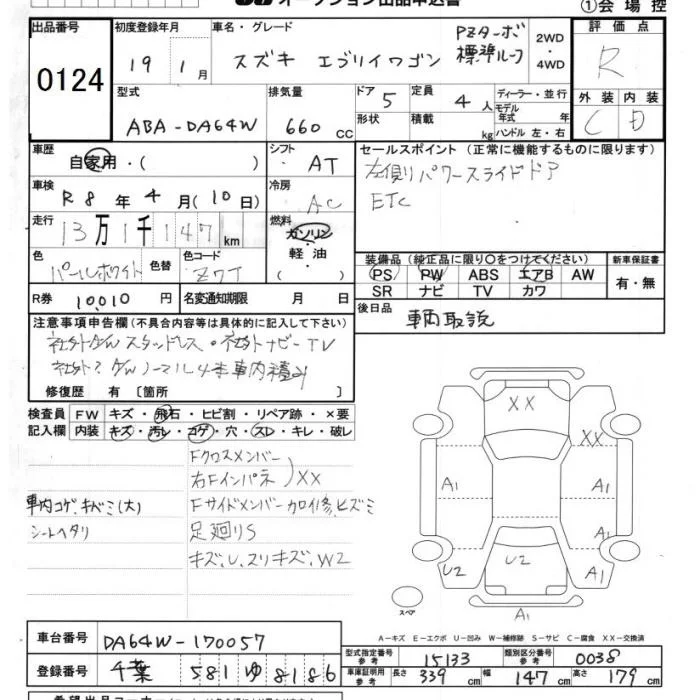 オークション出品申込書
①会場控
出品番号 0124
初度登録年月 19 1月
車名・グレード スズキ エブリイワゴン PZターボ 標準ルーフ
2WD ・4WD
評価点 R
外装 C 内装 D
型式 ABA-DA64W
排気量 660 CC
ドア 5
形状
定員 4人
積載 kg
ディーラー・並行
モデル年式 年
ハンドル 左・右
車歴 自家用・( )
シフト AT
セールスポイント (正常に機能するものに限ります)
左側パワースライドドア
ETC
車検 R8年4月(10日)
冷房 AC
走行 13万1千147km
燃料 ガソリン・軽油 ( )
色 パールホワイト 色替
色コード Z7T
装備品 (純正品に限り○をつけてください)
PS PW ABS エアB AW
SR ナビ TV カワ
新車保証書 有・無
R券 10,010円
名変通知期限 月 日
後日品 車両取説
注意事項申告欄(不具合内容等は具体的に記入して下さい)
社外AWスタッドレス・社外ナビーTV
社外?AWノーマル4本車内積み
修復歴 有 〔箇所 〕
検査員記入欄
FW キズ・飛石・ヒビ割・リペア跡・×要
内装 キズ・汚レ・コゲ・穴・スレ・キレ・破レ
Fクロスメンバー
右Fインパネ )XX
車内コゲ、キバミ(大) Fサイドメンバーカロイ修、ヒズミ
シートヘタリ 足廻りS
キズ、U、スリキズ、W2
XX
XX
A1 A1
A1
U2 U2 A1
A1
スペア
A-キズ E-エクボ U-凹み W-補修跡 S-サビ C-腐食 XX-交換済
車台番号 DA64W-170057
登録番号 千葉 581 ゆ 8186
型式指定番号 参考 15133
類別区分番号 参考 0038
車庫証明用 参考 長さ 339cm 幅 147cm 高さ 179cm